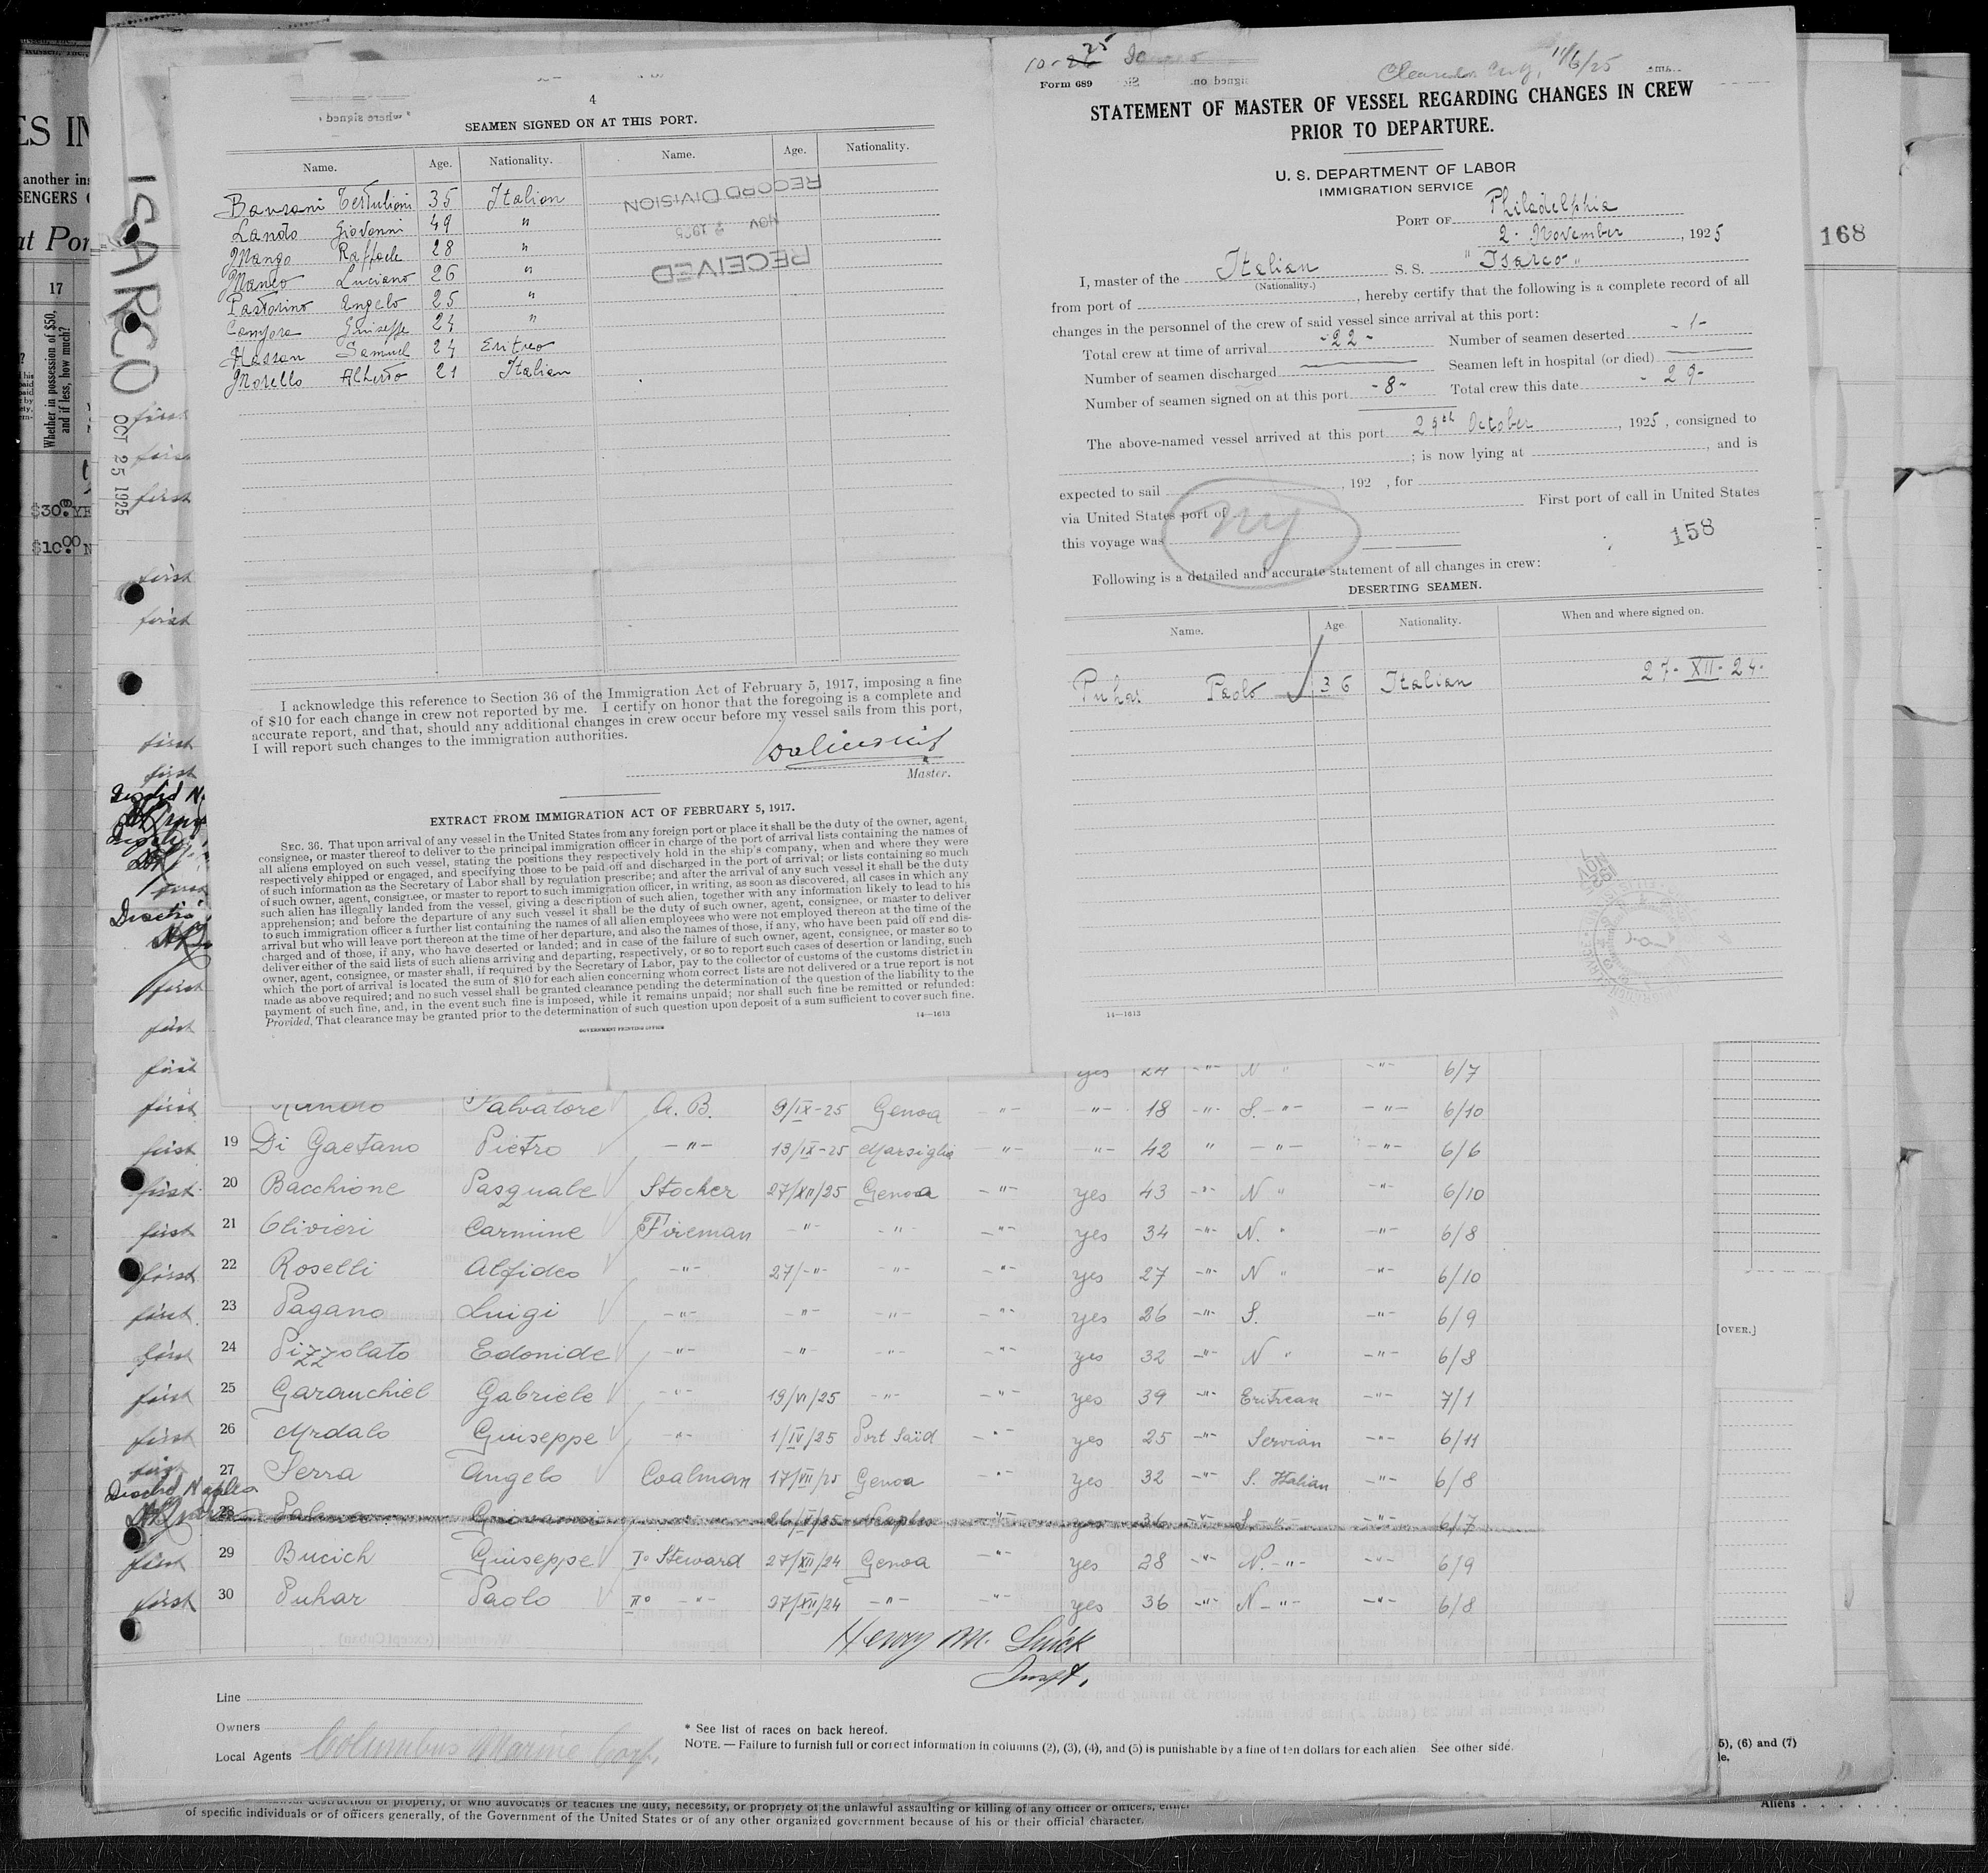 4
SEAMEN SIGNED ON AT THIS PORT.
Name. Age. Nationality. Name. Age. Nationality.
35 Italian
Lando Giovanni 49 "
Mango Raffaele 28 "
Manco Luciano 26 "
Pastorino Angelo 25 "
Giuseppe 24 "
Hassan Samuel 24 Eritreo
Morello Alberto 21 Italian
RECORD DIVISION
NOV
RECEIVED
I acknowledge this reference to Section 36 of the Immigration Act of February 5, 1917, imposing a fine
of $10 for each change in crew not reported by me. I certify on honor that the foregoing is a complete and
accurate report, and that, should any additional changes in crew occur before my vessel sails from this port,
I will report such changes to the immigration authorities.
Master.
EXTRACT FROM IMMIGRATION ACT OF FEBRUARY 5, 1917.
SEC. 36. That upon arrival of any vessel in the United States from any foreign port or place it shall be the duty of the owner, agent,
consignee, or master thereof to deliver to the principal immigration officer in charge of the port of arrival lists containing the names of
all aliens employed on such vessel, stating the positions they respectively hold in the ship's company, when and where they were
respectively shipped or engaged, and specifying those to be paid off and discharged in the port of arrival; or lists containing so much
of such information as the Secretary of Labor shall by regulation prescribe; and after the arrival of any such vessel it shall be the duty
of such owner, agent, consignee, or master to report to such immigration officer, in writing, as soon as discovered, all cases in which any
such alien has illegally landed from the vessel, giving a description of such alien, together with any information likely to lead to his
apprehension; and before the departure of any such vessel it shall be the duty of such owner, agent, consignee, or master to deliver
to such immigration officer a further list containing the names of all alien employees who were not employed thereon at the time of the
arrival but who will leave port thereon at the time of her departure, and also the names of those, if any, who have been paid off and dis-
charged and of those, if any, who have deserted or landed; and in case of the failure of such owner, agent, consignee, or master so to
deliver either of the said lists of such aliens arriving and departing, respectively, or so to report such cases of desertion or landing, such
owner, agent, consignee, or master shall, if required by the Secretary of Labor, pay to the collector of customs of the customs district in
which the port of arrival is located the sum of $10 for each alien concerning whom correct lists are not delivered or a true report is not
made as above required; and no such vessel shall be granted clearance pending the determination of the question of the liability to the
payment of such fine, and, in the event such fine is imposed, while it remains unpaid; nor shall such fine be remitted or refunded:
Provided, That clearance may be granted prior to the determination of such question upon deposit of a sum sufficient to cover such fine.
14—1613
GOVERNMENT PRINTING OFFICE
11/6/25
Form 689
STATEMENT OF MASTER OF VESSEL REGARDING CHANGES IN CREW
PRIOR TO DEPARTURE.
U. S. DEPARTMENT OF LABOR
IMMIGRATION SERVICE
PORT OF Philadelphia
2. November, 1925
I, master of the Italian S. S. "Isarco"
(Nationality.)
from port of , hereby certify that the following is a complete record of all
changes in the personnel of the crew of said vessel since arrival at this port:
Total crew at time of arrival -22- Number of seamen deserted -1-
Number of seamen discharged Seamen left in hospital (or died)
Number of seamen signed on at this port -8- Total crew this date -29-
The above-named vessel arrived at this port 29th October, 1925, consigned to
; is now lying at , and is
expected to sail , 192 , for
via United States port of First port of call in United States
this voyage was
ny
158
Following is a detailed and accurate statement of all changes in crew:
DESERTING SEAMEN.
Name. Age Nationality. When and where signed on.
Puhar Paolo 36 Italian 27-XII-24.
14—1613
ISARCO
OCT 25 1925
168
17
Whether in possession of $50,
and if less, how much?
$30.
$10.00
yes 24 -"- N " -"- 6/7
first Salvatore A. B. 9/IX-25 Genoa -"- -"- 18 -"- S. -"- -"- 6/10
first 19 Di Gaetano Pietro -"- 13/IX-25 Marsiglia -"- -"- 42 " -"- -"- 6/6
first 20 Bacchione Pasquale Stocher 27/XII/25 Genoa -"- yes 43 -"- N " -"- 6/10
first 21 Olivieri Carmine Fireman -"- -"- -"- yes 34 -"- N. " -"- 6/8
first 22 Roselli Alfideo -"- 27/-"- -"- -"- yes 27 -"- N " -"- 6/10
first 23 Pagano Luigi -"- -"- -"- -"- yes 26 -"- S. -"- 6/9
first 24 Pizzolato Edonide -"- -"- -"- -"- yes 32 -"- N " -"- 6/8
first 25 Garauchiel Gabriele -"- 19/VI/25 -"- -"- yes 39 -"- Eritrean -"- 7/1
first 26 Mrdalo Giuseppe -"- 1/IV/25 Port Said -"- yes 25 -"- Servian -"- 6/11
first 27 Serra Angelo Coalman 17/VII/25 Genoa -"- yes 32 -"- S. Italian -"- 6/8
Naples
28 Giovanni Naples -"- yes 36 -"- S. -"- -"- 6/7
first 29 Bucich Giuseppe I° Steward 27/XII/24 Genoa -"- yes 28 -"- N. -"- -"- 6/9
first 30 Puhar Paolo II° -"- 27/XII/24 -"- -"- yes 36 -"- N -"- -"- 6/8
Henry M.
Inspt.
Line
Owners
Local Agents Columbus Marine Corp.
* See list of races on back hereof.
NOTE.—Failure to furnish full or correct information in columns (2), (3), (4), and (5) is punishable by a fine of ten dollars for each alien See other side.
[OVER.]
5), (6) and (7)
Aliens
destruction of property, or who advocates or teaches the duty, necessity, or propriety of the unlawful assaulting or killing of any officer or officers, either
of specific individuals or of officers generally, of the Government of the United States or of any other organized government because of his or their official character.